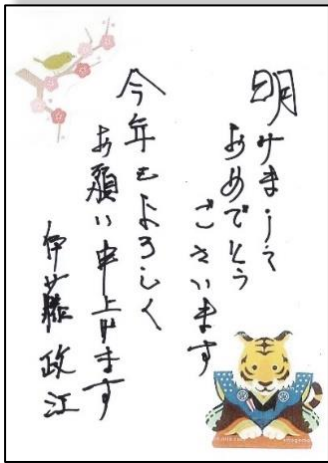 明けまして
おめでとう
ございます
今年もよろしく
お願い申上げます
伊藤政江